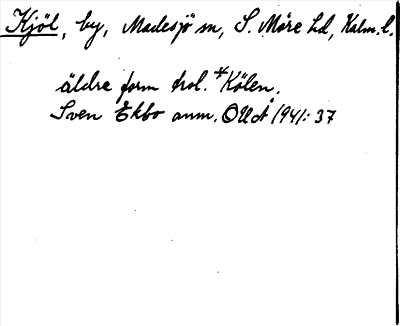 Kjöl, by, Madesjö sn, S. Möre hd, Kalm. l.
äldre form trol. *Kölen.
Sven Ekbo anm. OUÅ 1941: 37